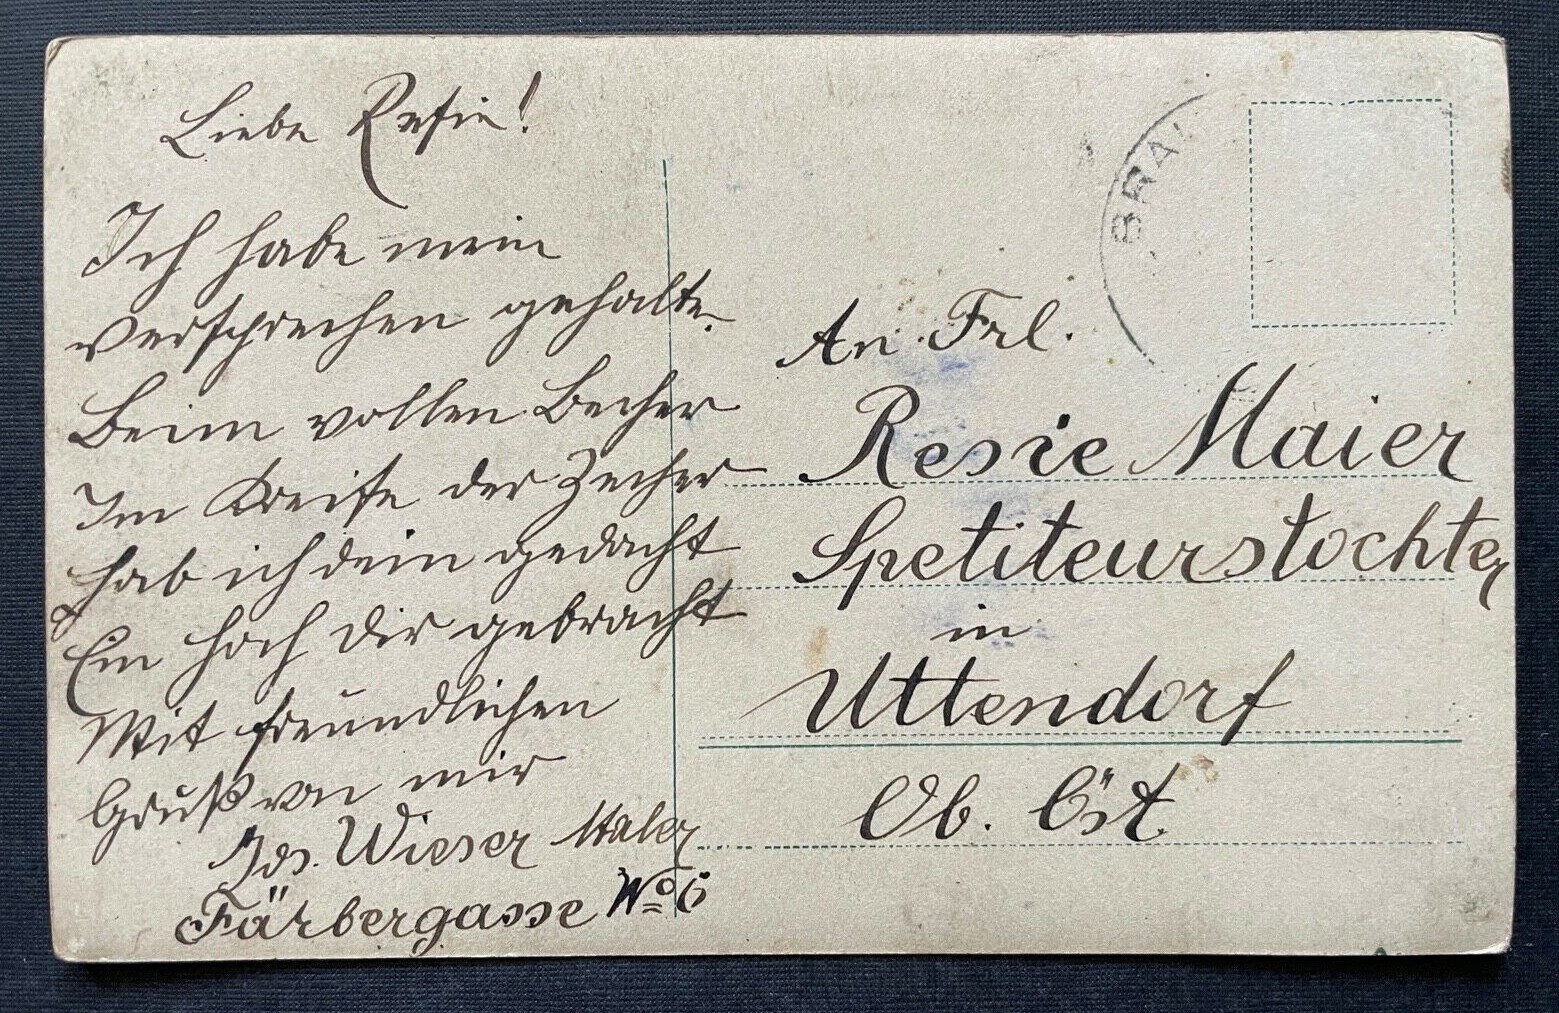 Liebe Resie!
Ich habe mein
Versprechen gehalten.
Beim vollen Becher
Im Kreise der Zecher
hab ich dein gedacht
Ein hoch dir gebracht
Mit freundlichen
Gruß von mir
Jos. Wieser Maler
Färbergasse No 6
BRAU
An Frl.
Resie Maier
Spetiteurstochter
in
Uttendorf
Ob. Öst